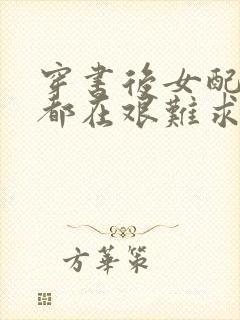 穿書後女配
都在艱難求
方華策